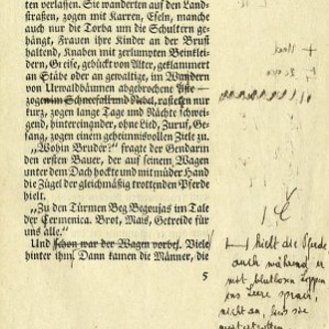 ten verlassen. Sie wanderten auf den Land-
straßen, zogen mit Karren, Eseln, manche
auch nur die Torba um die Schultern ge-
hängt, Frauen ihre Kinder an der Brust
haltend, Knaben mit zerlumpten Beinklei-
dern, Greise, gebückt von Alter, geklammert
an Stäbe oder an gewaltige, im Wandern
von Urwaldbäumen abgebrochene Äste —
zogen im Schneefall und Nebel, rasteten nur
kurz, zogen lange Tage und Nächte schwei-
gend, hintereinander, ohne Lied, Zuruf, Ge-
sang, zogen einem geheimnisvollen Ziele zu.
„Wohin Bruder?“ fragte der Gendarm
den ersten Bauer, der auf seinem Wagen
unter dem Dach hockte und mit müder Hand
die Zügel der gleichmäßig trottenden Pferde
hielt.
„Zu den Türmen Beg Begoujas im Tale
der Cermenica. Brot, Mais, Getreide für
uns alle.“
Und schon war der Wagen vorbei. Viele
hinter ihm. Dann kamen die Männer, die
5
hielt die Pferde
auch während er
mit blutlosen Lippen
ins Leere sprach,
nicht an, ließ sie